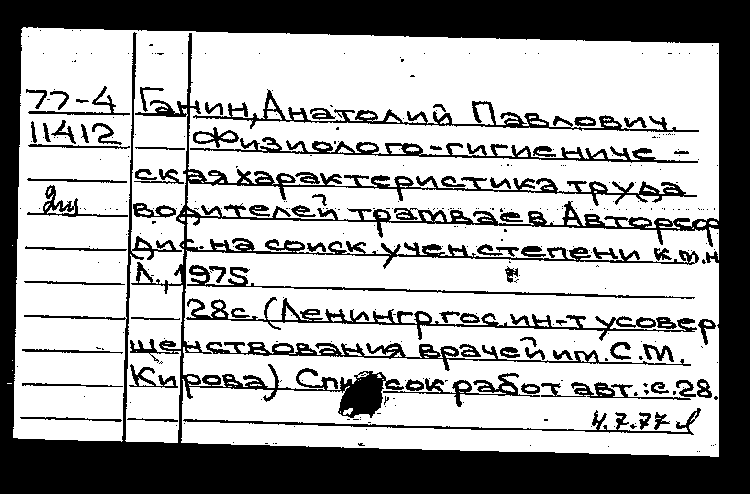 77-4 Ганин, Анатолий Павлович.
11412 Физиолого-гигиениче-
ская характеристика труда
водителей трамваев. Автореф
дис. на соиск. учен. степени к.м.н
Л., 1975.
28с. (Ленингр. гос. ин-т усовер-
шенствования врачей им. С.М.
Кирова) Список работ авт.: с.28.
4.7.77